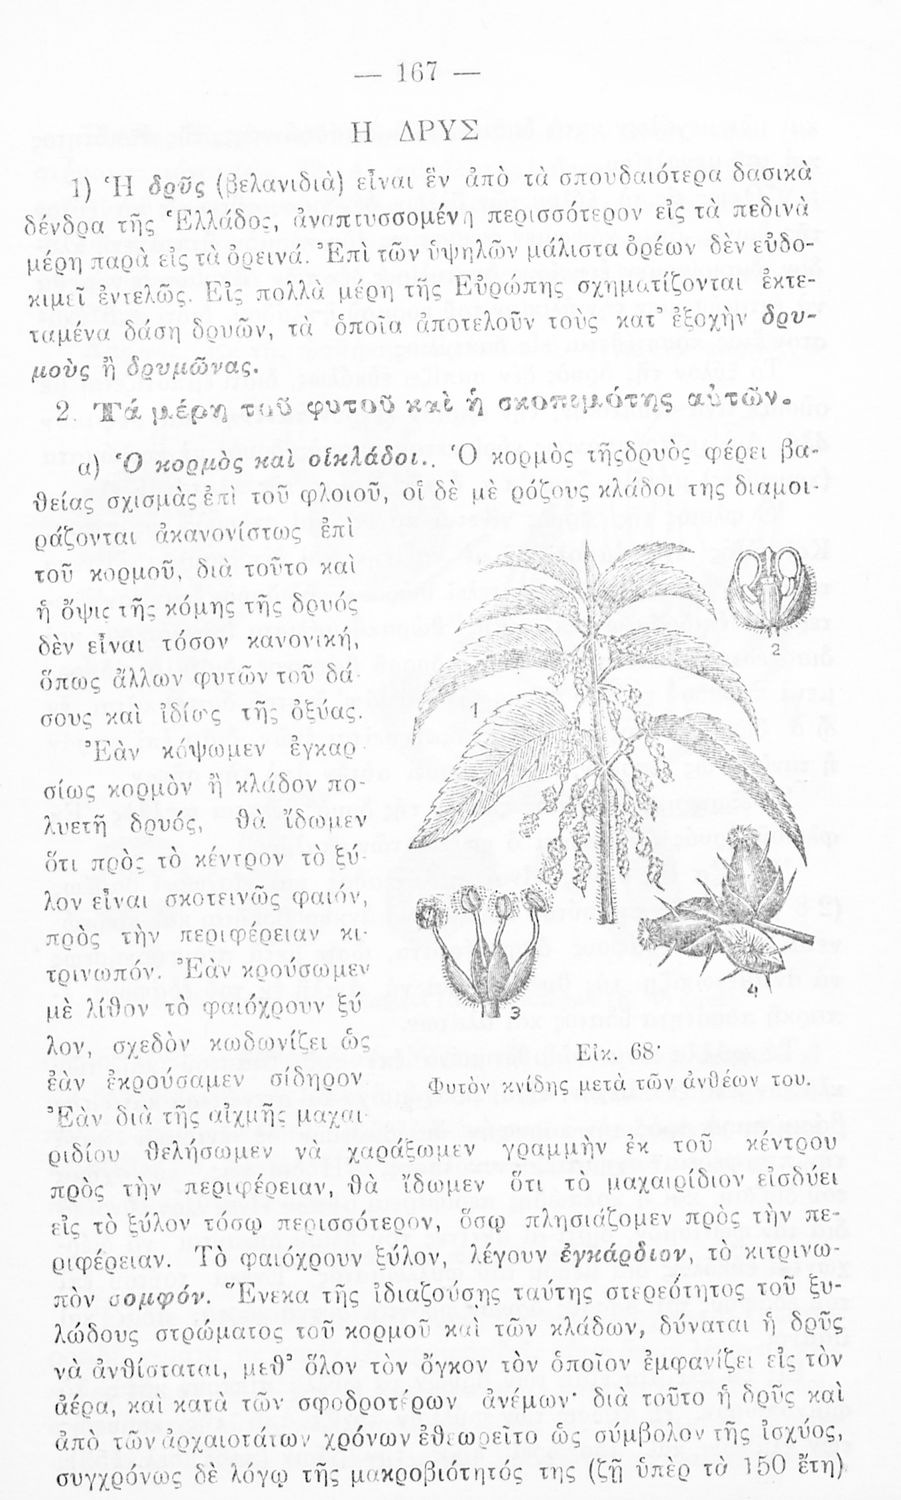 — 167 —
Η ΔΡΥΣ
1) Ἡ δρῦς (βελανιδιὰ) εἶναι ἓν ἀπὸ τὰ σπουδαιότερα δασικὰ
δένδρα τῆς Ἑλλάδος, ἀναπτυσσομένη περισσότερον εἰς τὰ πεδινὰ
μέρη παρὰ εἰς τὰ ὀρεινά. Ἐπὶ τῶν ὑψηλῶν μάλιστα ὀρέων δὲν εὐδο-
κιμεῖ ἐντελῶς. Εἰς πολλὰ μέρη τῆς Εὐρώπης σχηματίζονται ἐκτε-
ταμένα δάση δρυῶν, τὰ ὁποῖα ἀποτελοῦν τοὺς κατ᾽ ἐξοχὴν δρυ-
μοὺς ἢ δρυμῶνας.
2. Τά μέρη τοῦ φυτοῦ καὶ ἡ σκοπιμότης αὐτῶν.
α) Ὁ κορμὸς καὶ οἱκλάδοι.. Ὁ κορμὸς τῆςδρυὸς φέρει βα-
θείας σχισμὰς ἐπὶ τοῦ φλοιοῦ, οἱ δὲ μὲ ρόζους κλάδοι της διαμοι-
ράζονται ἀκανονίστως ἐπὶ
τοῦ κορμοῦ, διὰ τοῦτο καὶ
ἡ ὄψις τῆς κόμης τῆς δρυός
δὲν εἶναι τόσον κανονική,
ὅπως ἄλλων φυτῶν τοῦ δά-
σους καὶ ἰδίως τῆς ὀξύας.
Ἐὰν κόψωμεν ἐγκαρ-
σίως κορμὸν ἢ κλάδον πο-
λυετῆ δρυός, θὰ ἴδωμεν
ὅτι πρὸς τὸ κέντρον τὸ ξύ-
λον εἶναι σκοτεινῶς φαιόν,
πρὸς τὴν περιφέρειαν κι-
τρινωπόν. Ἐὰν κρούσωμεν
μὲ λίθον τὸ φαιόχρουν ξύ
λον, σχεδὸν κωδωνίζει ὡς
ἐὰν ἐκρούσαμεν σίδηρον
Ἐὰν διὰ τῆς αἰχμῆς μαχαι-
ριδίου θελήσωμεν νὰ χαράξωμεν γραμμὴν ἐκ τοῦ κέντρου
πρὸς τὴν περιφέρειαν, θὰ ἴδωμεν ὅτι τὸ μαχαιρίδιον εἰσδύει
εἰς τὸ ξύλον τόσῳ περισσότερον, ὅσῳ πλησιάζομεν πρὸς τὴν πε-
ριφέρειαν. Τὸ φαιόχρουν ξύλον, λέγουν ἐγκάρδιον, τὸ κιτρινω-
πὸν σομφόν. Ἕνεκα τῆς ἰδιαζούσης ταύτης στερεότητος τοῦ ξυ-
λώδους στρώματος τοῦ κορμοῦ καὶ τῶν κλάδων, δύναται ἡ δρῦς
νὰ ἀνθίσταται, μεθ᾽ ὅλον τὸν ὄγκον τὸν ὁποῖον ἐμφανίζει εἰς τὸν
ἀέρα, καὶ κατὰ τῶν σφοδροτέρων ἀνέμων· διὰ τοῦτο ἡ δρῦς καὶ
ἀπὸ τῶν ἀρχαιοτάτων χρόνων ἐθεωρεῖτο ὡς σύμβολον τῆς ἰσχύος,
συγχρόνως δὲ λόγῳ τῆς μακροβιότητός της (ζῇ ὑπὲρ τὰ 150 ἔτη)
1
2
3
4
Εἰκ. 68·
Φυτὸν κνίδης μετὰ τῶν ἀνθέων του.